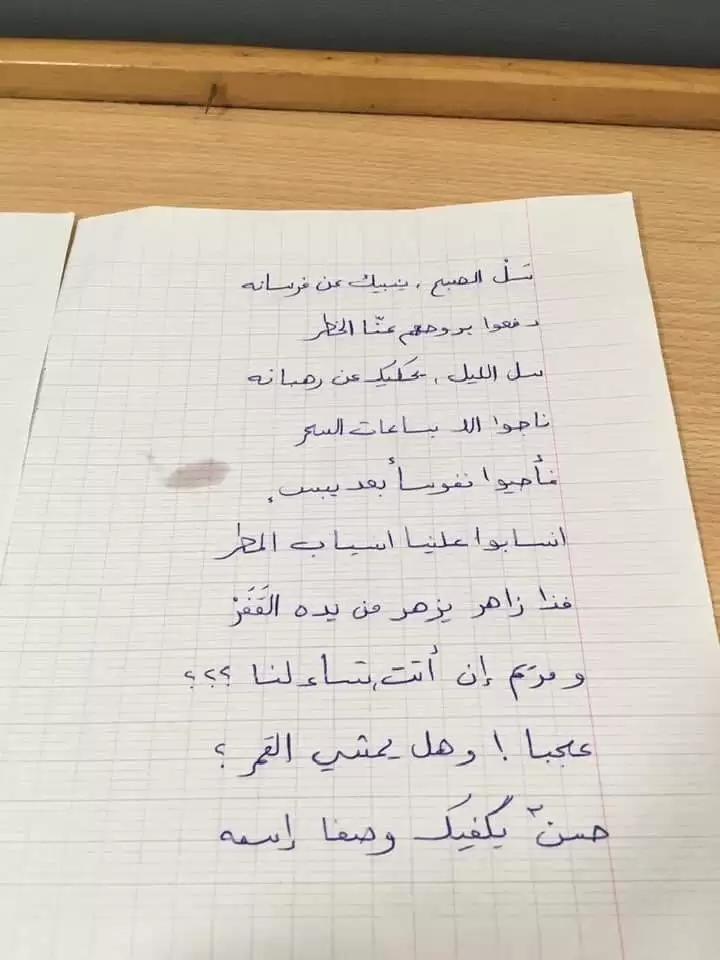 سَلْ الصبح، ينبيك عن فرسانه
دفعوا بروحهم عنّا الخطر
سل الليل، يحكيك عن رهبانه
ناجوا الله بساعات السحر
فأحيوا نفوساً بعد يبسٍ
انسابوا علنيا اسياب المطر
فذا زاهر يزهر من يده القَفَرْ
ومريم إن أتت، تساءلنا ؟؟؟
عجبا ! وهل يمشي القمر ؟
حسنٌ يكفيك وصفا إسمه